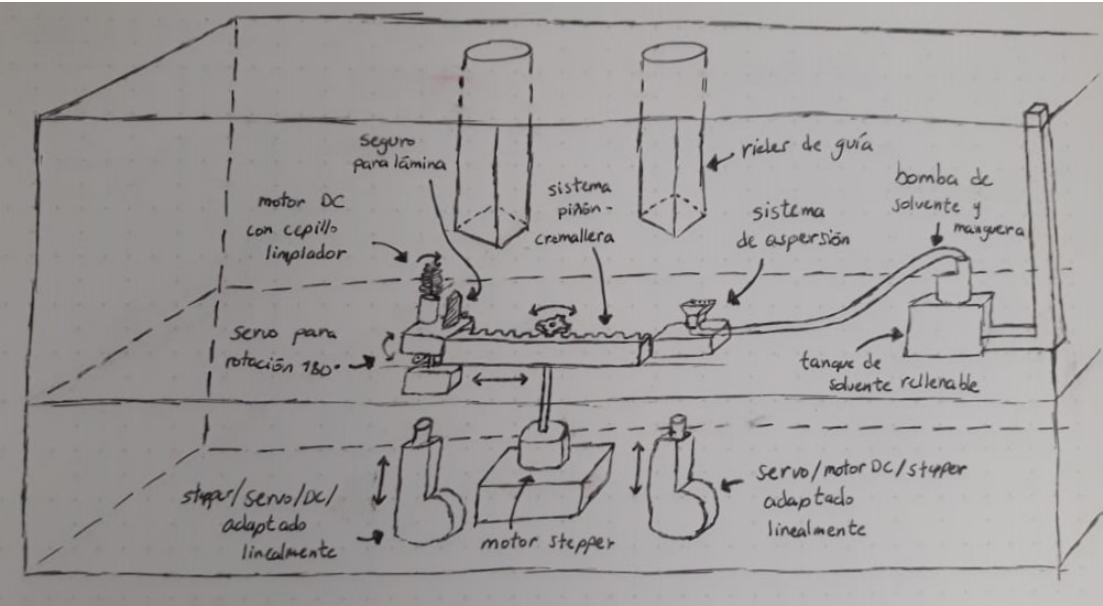 seguro
para lámina
motor DC
con cepillo
limpiador
servo para
rotación 180°
sistema
piñón-
cremallera
rieles de guía
sistema
de aspersión
bomba de
solvente y
manguera
tanque de
solvente rellenable
stepper/servo/DC/
adaptado
linealmente
motor stepper
servo/motor DC/stepper
adaptado
linealmente